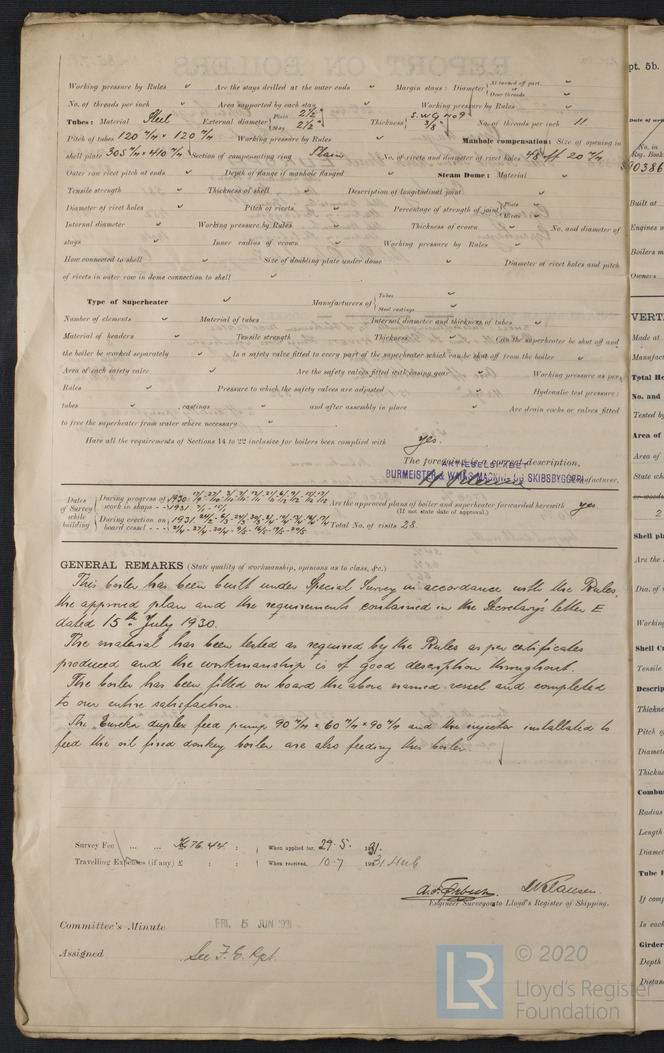 Working pressure by Rules ✓ Are the stays drilled at the outer ends ✓ Margin stays: Diameter { At turned off part, ✓ or Over threads ✓
No. of threads per inch ✓ Area supported by each stay ✓ Working pressure by Rules ✓
Tubes: Material Steel External diameter { Plain 2½" Stay 2½" Thickness { S.W.G. No 9 3/8" No. of threads per inch 11
Pitch of tubes 120 m/m × 120 m/m Working pressure by Rules ✓ Manhole compensation: Size of opening in
shell plate 305 m/m × 410 m/m Section of compensating ring Plain No. of rivets and diameter of rivet holes 48 off 20 m/m
Outer row rivet pitch at ends ✓ Depth of flange if manhole flanged ✓ Steam Dome: Material ✓
Tensile strength ✓ Thickness of shell ✓ Description of longitudinal joint ✓
Diameter of rivet holes ✓ Pitch of rivets ✓ Percentage of strength of joint { Plate ✓ Rivets ✓
Internal diameter ✓ Working pressure by Rules ✓ Thickness of crown ✓ No. and diameter of
stays ✓ Inner radius of crown ✓ Working pressure by Rules ✓
How connected to shell ✓ Size of doubling plate under dome ✓ Diameter of rivet holes and pitch
of rivets in outer row in dome connection to shell ✓
Type of Superheater ✓ Manufacturers of { Tubes ✓ Steel castings ✓
Number of elements ✓ Material of tubes ✓ Internal diameter and thickness of tubes ✓
Material of headers ✓ Tensile strength ✓ Thickness ✓ Can the superheater be shut off and
the boiler be worked separately ✓ Is a safety valve fitted to every part of the superheater which can be shut off from the boiler ✓
Area of each safety valve ✓ Are the safety valves fitted with easing gear ✓ Working pressure as per
Rules ✓ Pressure to which the safety valves are adjusted ✓ Hydraulic test pressure:
tubes ✓ castings ✓ and after assembly in place ✓ Are drain cocks or valves fitted
to free the superheater from water where necessary ✓
Have all the requirements of Sections 14 to 22 inclusive for boilers been complied with yes.
The foregoing is a correct description,
AKTIESELSKABET
BURMEISTER & WAIN'S MASKIN- OG SKIBSBYGGERI Manufacturer.
Dates of Survey while building { During progress of work in shops - - 1930
1931
Are the approved plans of boiler and superheater forwarded herewith yes.
(If not state date of approval.)
During erection on board vessel - - - 1931
Total No. of visits 28.
GENERAL REMARKS (State quality of workmanship, opinions as to class, &c.)
This boiler has been built under Special Survey in accordance with the Rules,
the approved plan and the requirements contained in the Secretary's letter E
dated 15th July 1930.
The material has been tested as required by the Rules as per certificates
produced and the workmanship is of good description throughout.
The boiler has been fitted on board the above named vessel and completed
to our entire satisfaction.
The Eureka duplex feed pump 90 m/m × 60 m/m × 90 m/m and the injector installated to
feed the oil fired donkey boiler are also feeding this boiler
Survey Fee ... ... Kr 76.44 : When applied for, 29.5. 1931.
Travelling Expenses (if any) £ : : When received, 10.7 1931
Engineer Surveyor to Lloyd's Register of Shipping.
Committee's Minute FRI. 5 JUN 1931
Assigned See F.E. Rpt.
© 2020
LR Lloyd's Register
Foundation
pt. 5b.
Date of wri
No. in
Reg. Book
90386
Built at
Engines m
Boilers m
Owners
VERT
Made at
Manufact
Total He
No. and
Tested by
Area of
Area of
State wh
2
Shell pla
Are the
Dia. of
Working
Shell Cr
Tensile
Descrip
Thickne
Pitch o
Diamet
Thickn
Combus
Radius
Length
Diamet
Tube P
If comp
Is each
Girder
Depth
Distan